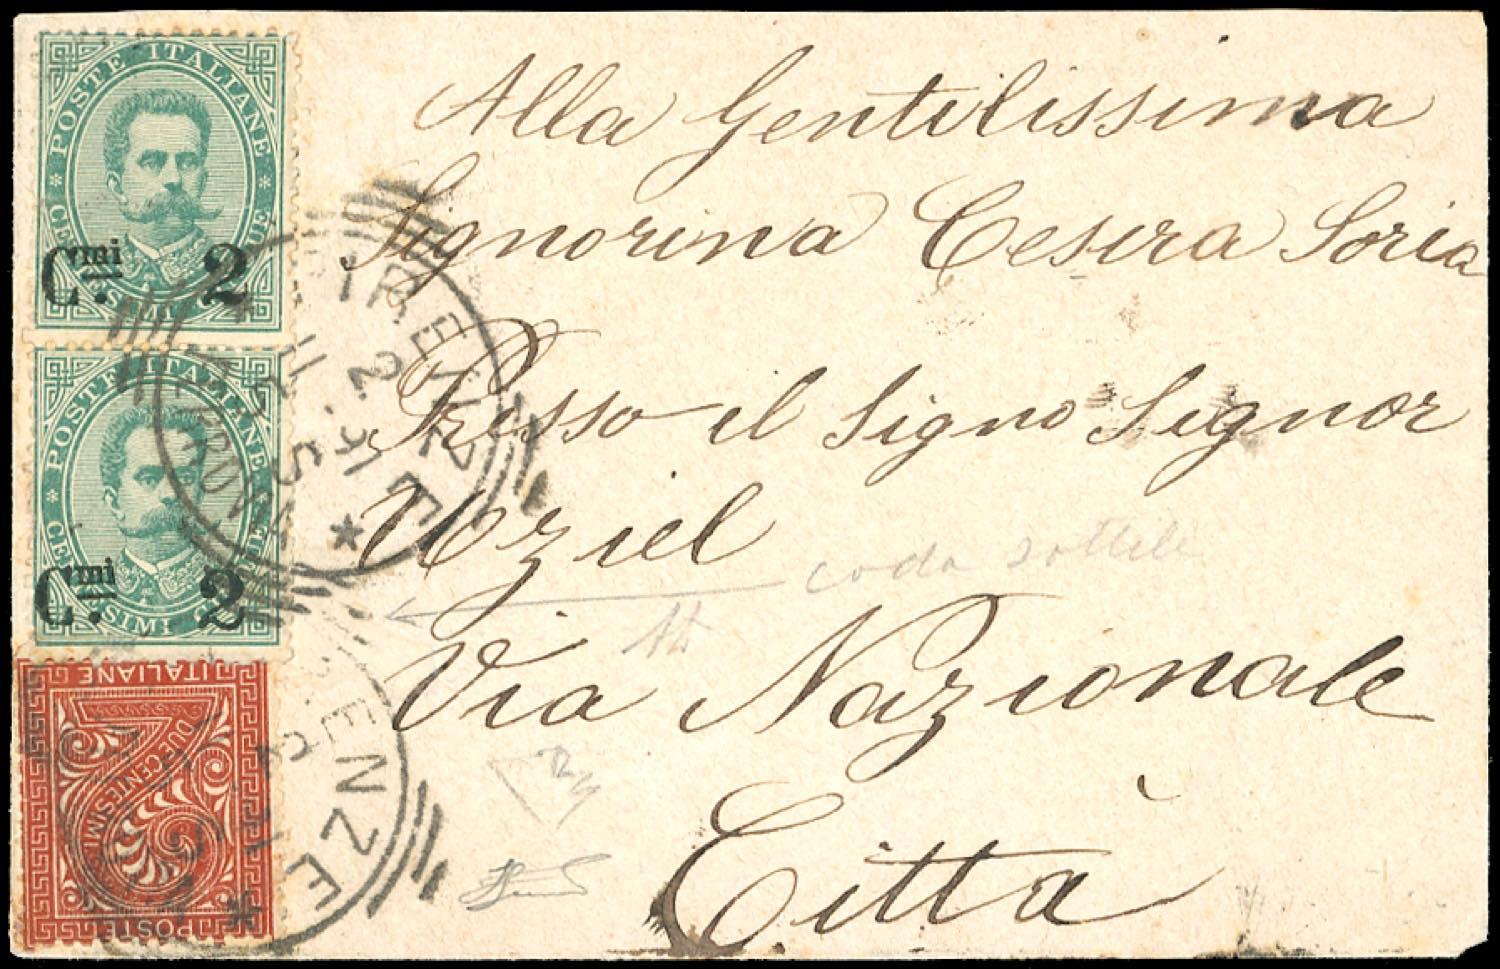 Alla Gentilissima
Signorina Cesira Soria
Presso il Signo Signor
Uziel
Via Nazionale
Città
coda sottile
POSTE ITALIANE
Cmi. 2
POSTE ITALIANE
Cmi. 2
POSTE ITALIANE
DUE CENTESIMI
FIRENZE
FERROVIA
2 91
FIRENZE